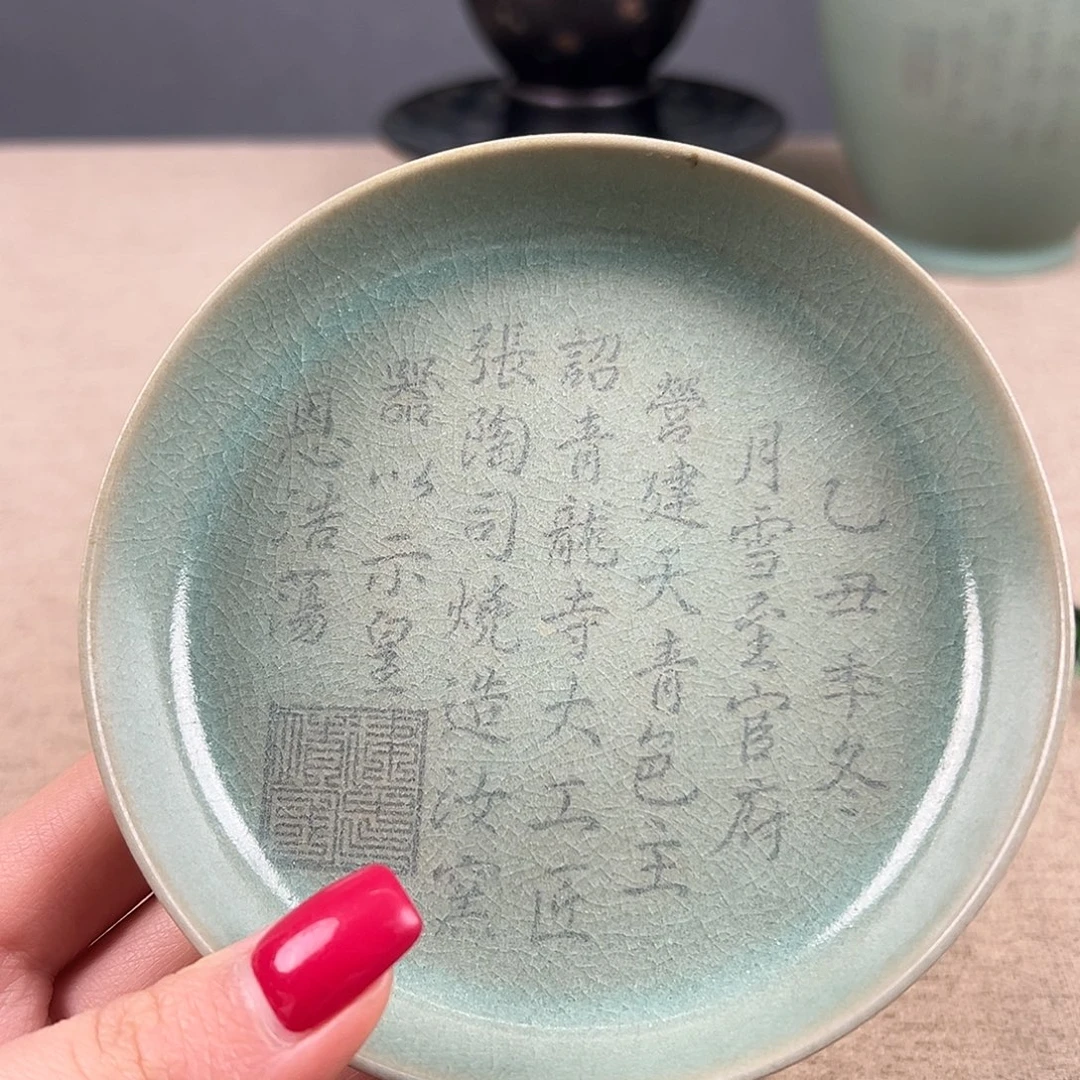 乙丑年冬
月雪垩宦府
營建天青包主
詔青龍寺大工匠
張陶司燒造汝窑
器以示皇
恩浩蕩